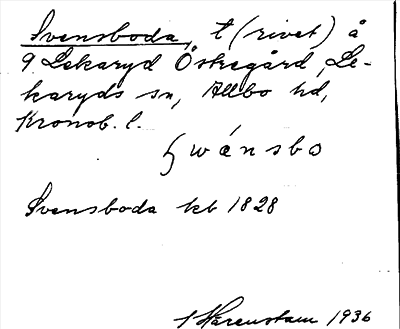 Svensboda, t (rivet) å
9 Lekaryd Östregård, Le-
karyds sn, Allbo hd,
Kronob. l.
swánsbo
Svensboda kb 1828
Härenstam 1936